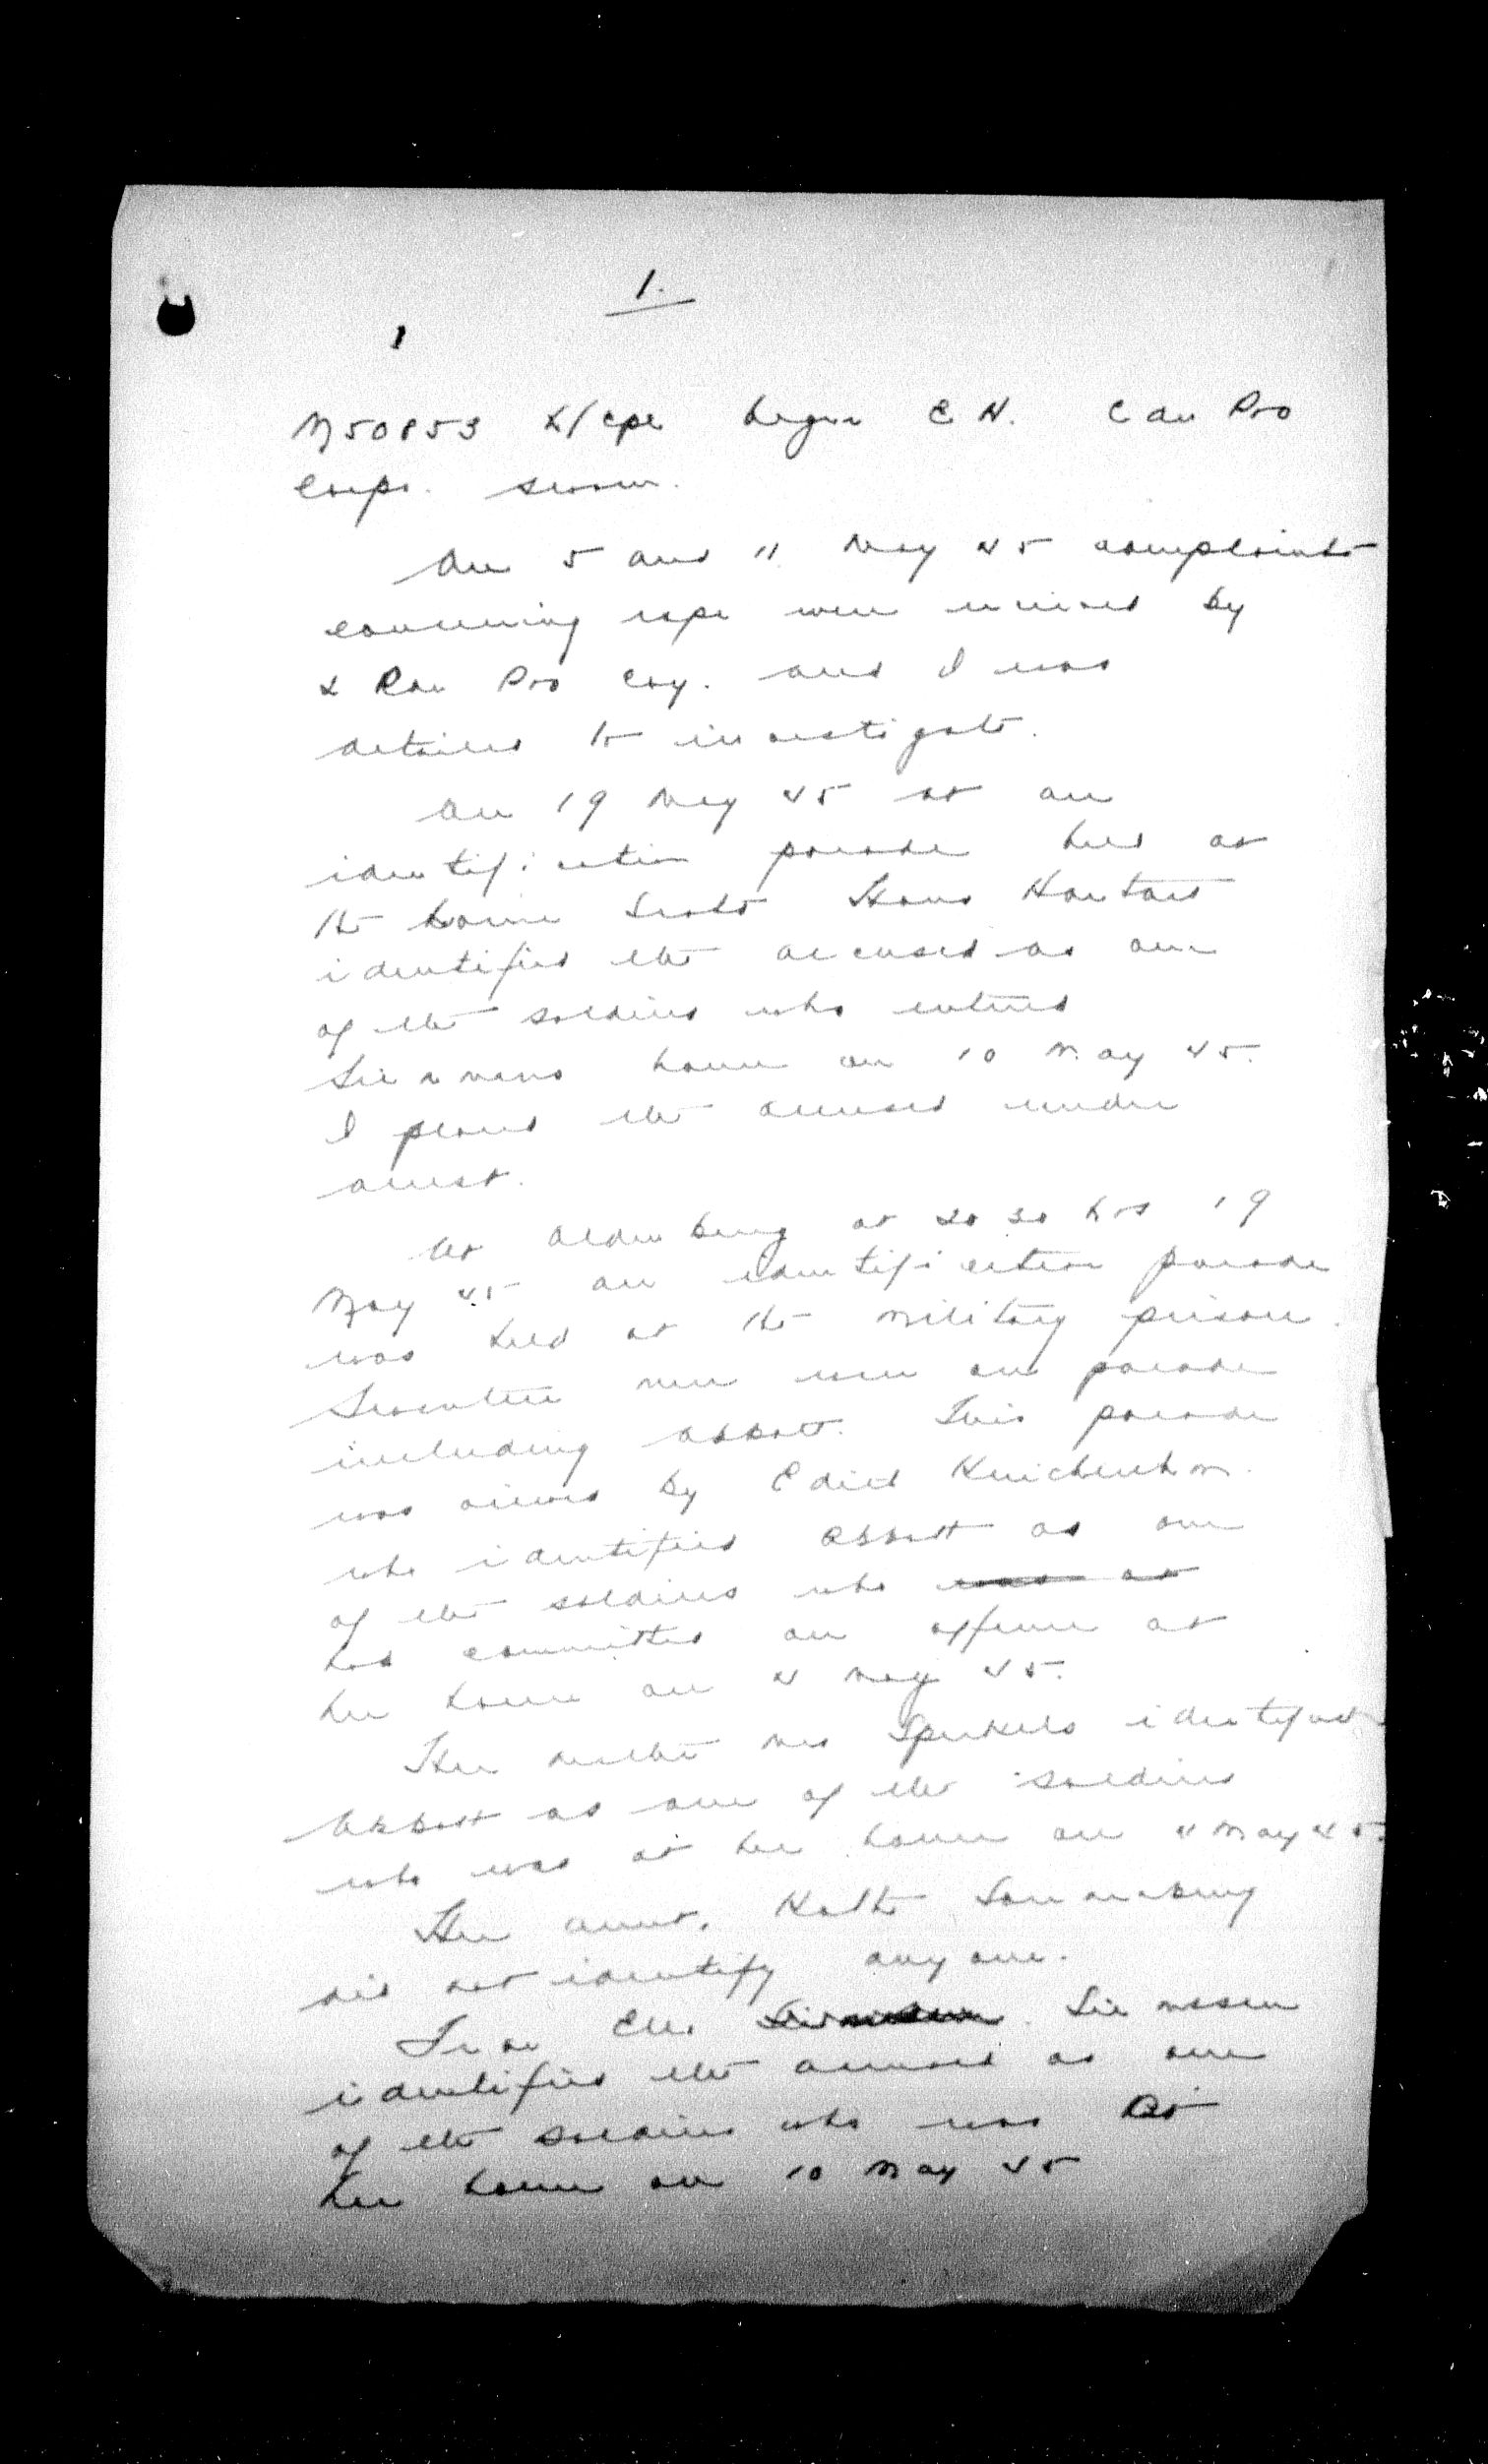 1.
M50853 L/Cpl E H. Can Pro
Corps. sworn.
On 5 and 11 May 45 complaints
concerning rape were received by
2 Can Pro Coy. and I was
detailed to investigate.
On 19 May 45 at an
identification parade held at
the Hans
identified the accused as one
of the soldiers who entered
home on 10 May 45.
I placed the accused under
arrest.
At Oldenburg at 2030 hrs 19
May 45 an identification parade
was held at the military prison.
Seventeen men were on parade
including Abbott. This parade
was viewed by Edith
who identified Abbott as one
of the soldiers who was at
had committed an offence at
her home on 4 May 45.
Her mother Mrs identified
Abbott as one of the soldiers
who was at her home on 4 May 45.
Her aunt, Kathe
did not identify anyone.
Frau Siemssen
identified the accused as one
of the soldiers who was at
her home on 10 May 45